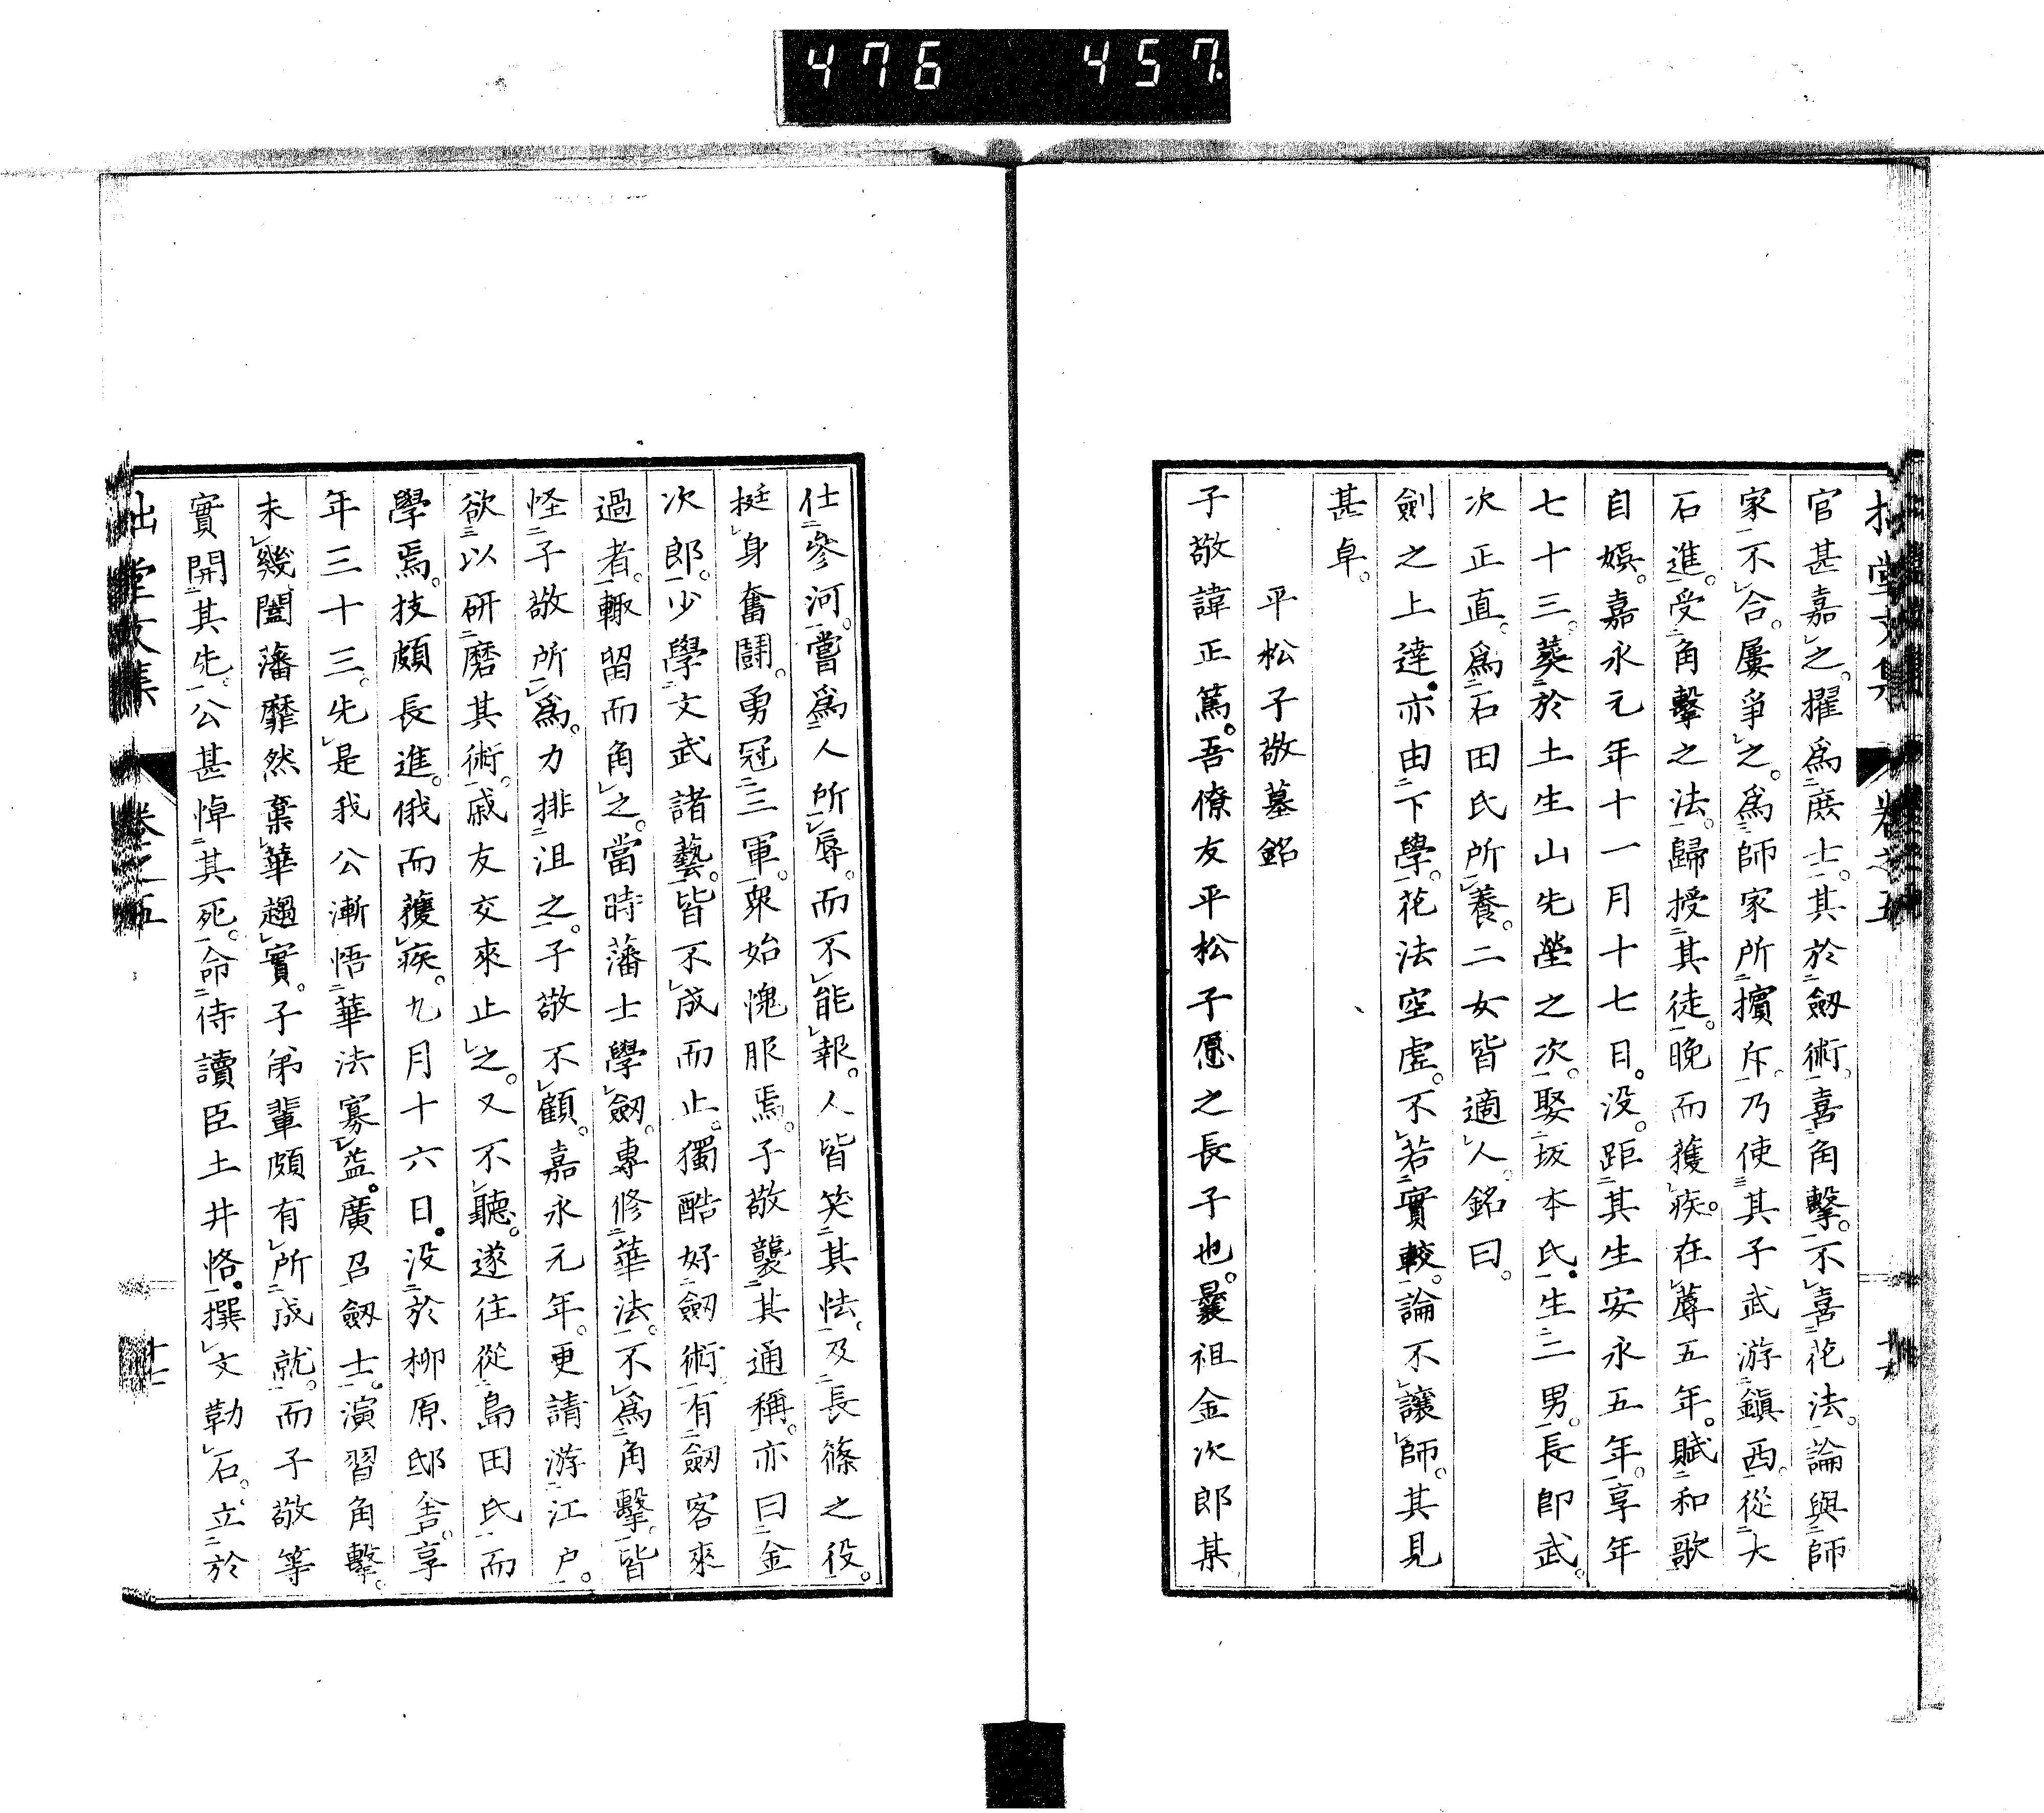 476 457.
拙堂文集 卷之五 十六
官甚嘉之。擢爲庶士。其於劔術。喜角擊。不喜花法。論與師
家不合。屢爭之。爲師家所擯斥。乃使其子武游鎭西。從大
石進。受角擊之法。歸授其徒。晚而獲疾。在蓐五年。賦和歌
自娛。嘉永元年十一月十七日。没。距其生安永五年。享年
七十三。葬於土生山先塋之次。娶坂本氏。生二男。長卽武。
次正直。爲石田氏所養。二女皆適人。銘曰。
劍之上達。亦由下學。花法空虛。不若實較。論不讓師。其見
甚卓。
平松子敬墓銘
子敬諱正篤。吾僚友平松子愿之長子也。曩祖金次郎某
仕參河。嘗爲人所辱。而不能報。人皆笑其怯。及長篠之役。
挺身奮鬪。勇冠三軍。衆始愧服焉。子敬襲其通稱。亦曰金
次郎。少學文武諸藝。皆不成而止。獨酷好劔術。有劔客來
過者。輙留而角之。當時藩士學劔。專修華法。不爲角擊。皆
怪子敬所爲。力排沮之。子敬不顧。嘉永元年。更請游江戶。
欲以研磨其術。戚友交來止之。又不聽。遂往從島田氏而
學焉。技頗長進。俄而獲疾。九月十六日。没於柳原邸舎。享
年三十三。先是我公漸悟華法寡益。廣召劔士。演習角擊。
未幾闔藩靡然棄華趨實。子弟輩頗有所成就。而子敬等
實開其先。公甚悼其死。命侍讀臣土井恪。撰文勒石。立於
拙堂文集 卷之五 十七